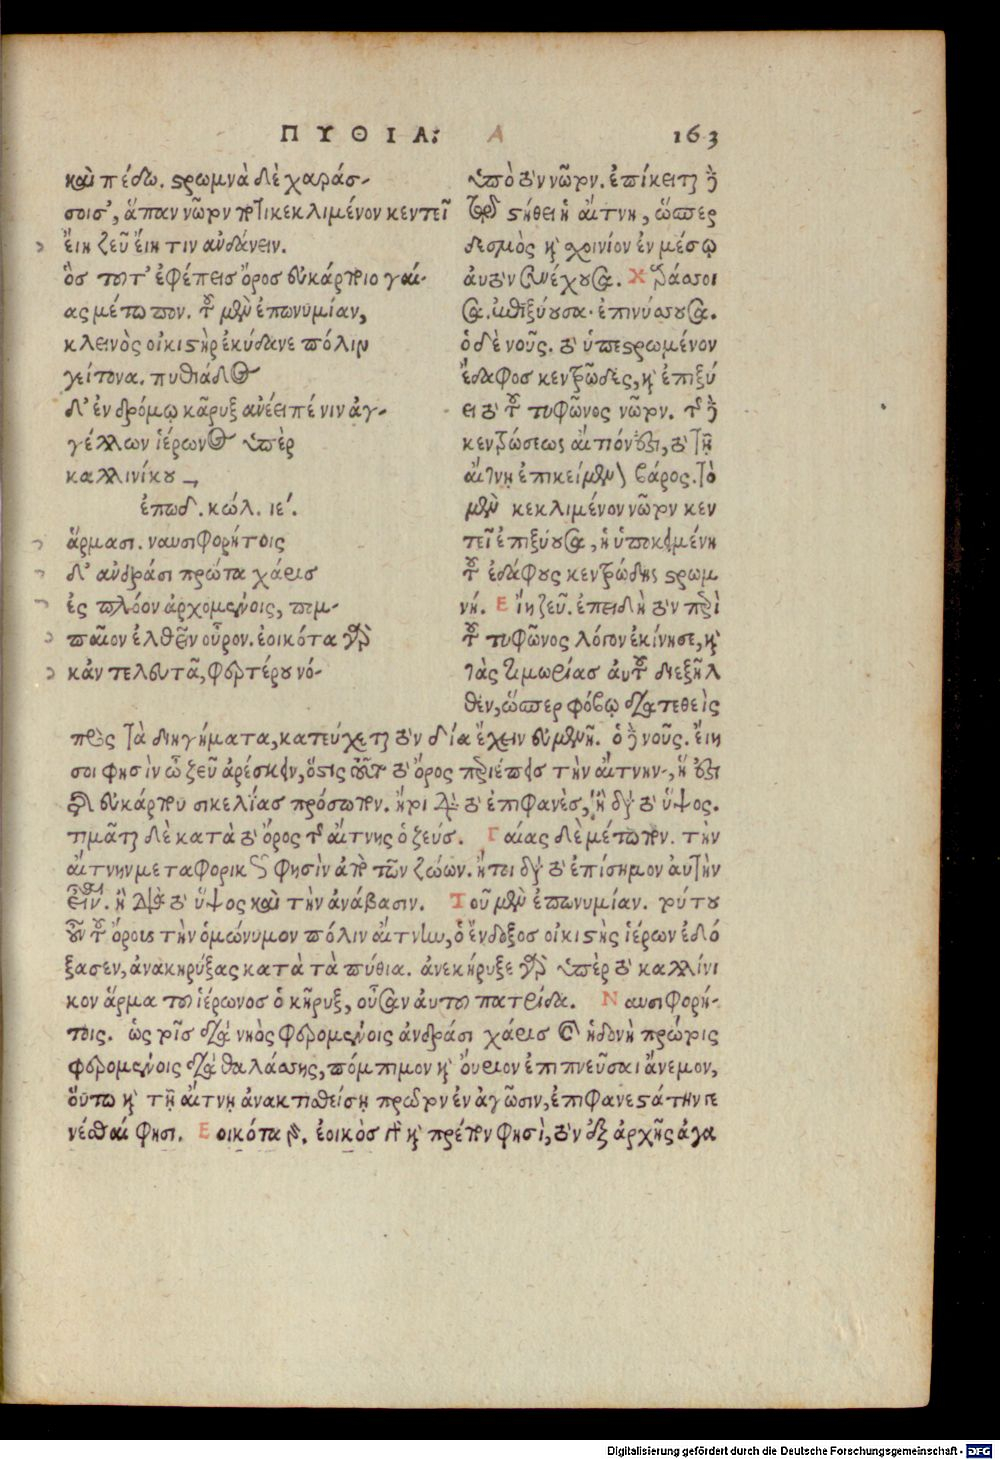 ΠΥΘΙΑ: Α 163
καὶ πέδῳ. στρωμνὰ δὲ χαράσ-
σοισ', ἅπαν νῶτον ποτικεκλιμένον κεντεῖ
εἴη ζεῦ εἴη τιν ἀνδάνειν.
ὃς τοῦτ' ἐφέπεις ὄρος εὐκάρποιο γαί-
ας μέτωπον. τοῦ μὲν ἐπωνυμίαν,
κλεινὸς οἰκιστὴρ ἐκύδανε πόλιν
γείτονα. πυθιάδος
δ' ἐν δρόμῳ κᾶρυξ ἀνέειπέ νιν ἀγ-
γέλλων ἱέρωνος ὑπὲρ
καλλινίκου
ἐπωδ. κώλ. ιε΄.
ἅρμασι. ναυσιφορήτοις
δ' ἀνδράσι πρώτα χάρις
ἐς πλόον ἀρχομένοις, πομ-
παῖον ἐλθεῖν οὖρον. ἐοικότα γὰρ
κἀν τελευτᾷ, φερτέρου νό-
ὑπὸ τὸν νῶτον. ἐπίκειται δὲ
τῷ στήθει ἡ αἴτνη, ὥσπερ
δεσμὸς καὶ σχοινίον ἐν μέσῳ
αὐτὸν συνέχουσα. Χαράσσοι
σα. καταξύουσα. ἐπινύσσουσα.
ὁ δὲ νοῦς. τὸ ὑπεστρωμένον
ἔδαφος κεντρῶδες, καὶ ἐπιξύ
ει τὸ τοῦ τυφῶνος νῶτον. τῆς δὲ
κεντρώσεως αἴτιόν ἐστι, τὸ τῇ
αἴτνῃ ἐπικείμενον βάρος. τὸ
μὲν κεκλιμένον νῶτον κεν
τεῖ ἐπιξύουσα, ἡ ὑποκειμένη
τοῦ ἐδάφους κεντρώδης στρωμ
νή. Εἴη ζεῦ. ἐπειδὴ τὸν περὶ
τοῦ τυφῶνος λόγον ἐκίνησε, καὶ
τὰς τιμωρίας αὐτοῦ διεξῆλ
θεν, ὥσπερ φόβῳ διατεθεὶς
πρὸς τὰ διηγήματα, κατεύχεται τὸν δία ἔχειν εὐμενῆ. ὁ δὲ νοῦς. εἴη
σοι φησὶν ὦ ζεῦ ἀρέσκειν, ὅστις τοῦτο τὸ ὄρος περιέπεις τὴν αἴτνην, ἥ ἐστι
τῆς εὐκάρπου σικελίας πρόσωπον. ἤτοι διὰ τὸ ἐπιφανὲς, ἢ διὰ τὸ ὕψος.
τιμᾶται δὲ κατὰ τὸ ὄρος τῆς αἴτνης ὁ ζεύς. Γαίας δὲ μέτωπον. τὴν
αἴτνην μεταφορικῶς φησὶν ἀπὸ τῶν ζώων. ἤτοι διὰ τὸ ἐπίσημον αὐτὴν
εἶναι. ἢ διὰ τὸ ὕψος καὶ τὴν ἀνάβασιν. Τοῦ μὲν ἐπωνυμίαν. τούτου
οὖν τοῦ ὄρους τὴν ὁμώνυμον πόλιν αἴτνην, ὁ ἔνδοξος οἰκιστὴς ἱέρων ἐδό
ξασεν, ἀνακηρύξας κατὰ τὰ πύθια. ἀνεκήρυξε γὰρ ὑπὲρ τὸ καλλίνι
κον ἅρμα τοῦ ἱέρωνος ὁ κῆρυξ, οὖσαν αὐτοῦ πατρίδα. Ναυσιφορή-
τοις. ὡς τοῖς διὰ νηὸς φερομένοις ἀνδράσι χάρις καὶ ἡδονὴ πρώτοις
φερομένοις διὰ θαλάσσης, πόμπιμον καὶ οὔριον ἐπιπνεῦσαι ἄνεμον,
οὕτω καὶ τῇ αἴτνῃ ἀνακτισθείσῃ πρῶτον ἐν ἀγῶσιν, ἐπιφανεστάτην γε
νέσθαι φησι. Ἐοικότα δέ. ἐοικὸς γὰρ καὶ πρέπον φησὶ, τὸν ἐξ ἀρχῆς ἀγα
Digitalisierung gefördert durch die Deutsche Forschungsgemeinschaft - DFG